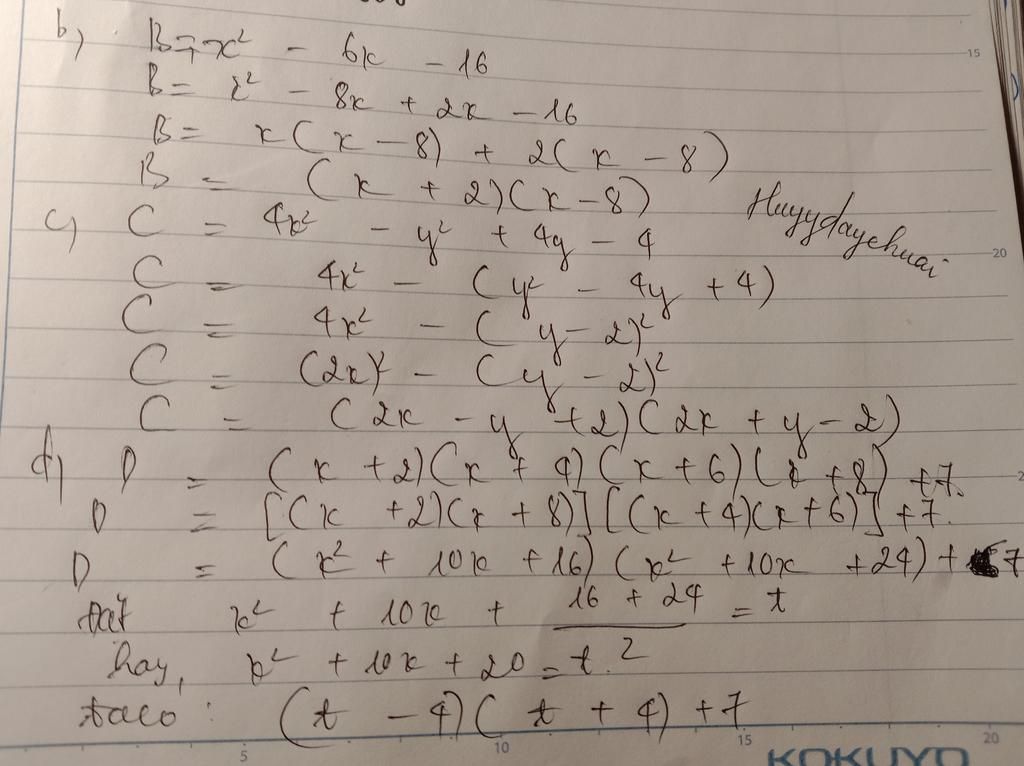 b) B = x² - 6x - 16
B = x² - 8x + 2x - 16
B = x(x - 8) + 2(x - 8)
B = (x + 2)(x - 8)
Huyydaychuai
c) C = 4x² - y² + 4y - 4
C = 4x² - (y² - 4y + 4)
C = 4x² - (y - 2)²
C = (2x)² - (y - 2)²
C = (2x - y + 2)(2x + y - 2)
d) D = (x + 2)(x + 4)(x + 6)(x + 8) + 7.
D = [(x + 2)(x + 8)][(x + 4)(x + 6)] + 7.
D = (x² + 10x + 16)(x² + 10x + 24) + 7
đặt x² + 10x + (16 + 24)/2 = t
hay, x² + 10x + 20 = t.
ta có : (t - 4)(t + 4) + 7
15
20
5 10 15 20
KOKUYO